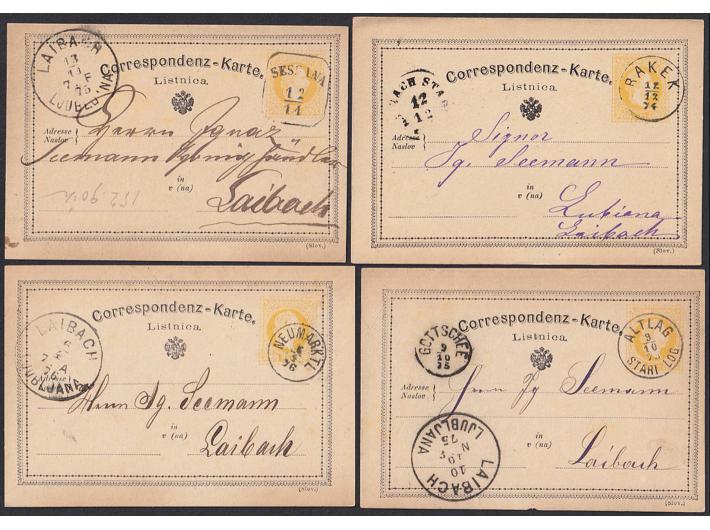 LAIBACH
13
11
75
LJUBLJANA
Correspondenz-Karte.
Listnica.
SESSANA
12
11
Adresse
Naslov
Herrn Ignaz
Seemann
in
v (na)
Laibach
(Slov.)
Correspondenz-Karte.
Listnica.
12
12
RAKEK
12
12
74
Adresse
Naslov
Signor
Ig. Seemann
in
v (na)
Lubiana
Laibach
(Slov.)
Correspondenz-Karte.
Listnica.
LAIBACH
NEUMARKTL
76
Adresse
Herrn Ig. Seemann
in
v (na)
Laibach
(Slov.)
Correspondenz-Karte.
Listnica.
GOTTSCHEE
9
10
75
ALTLAG
9
10
STARI LOG
Adresse
Naslov
Herrn Ig Seemann
in
v (na)
Laibach
LAIBACH
10
N
75
LJUBLJANA
(Slov.)